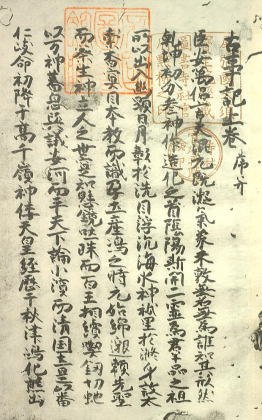 古事記上卷 序并
臣安萬侶言夫混元既凝氣象未效無名無為誰知其形然
乾坤初分參神作造化之首陰陽斯開二靈為群品之祖
所以出入幽顯日月彰於洗目浮沉海水神祇呈於滌身故太
素杳冥因本教而識孕土產嶋之時元始綿邈頼先聖
而察生神立人之世寔知懸鏡吐珠而百王相續喫釼切虵
以万神蕃息與議安河而平天下論小濱而清国土是以番
仁岐命初降于高千嶺神倭天皇經歷于秋津嶋化熊出